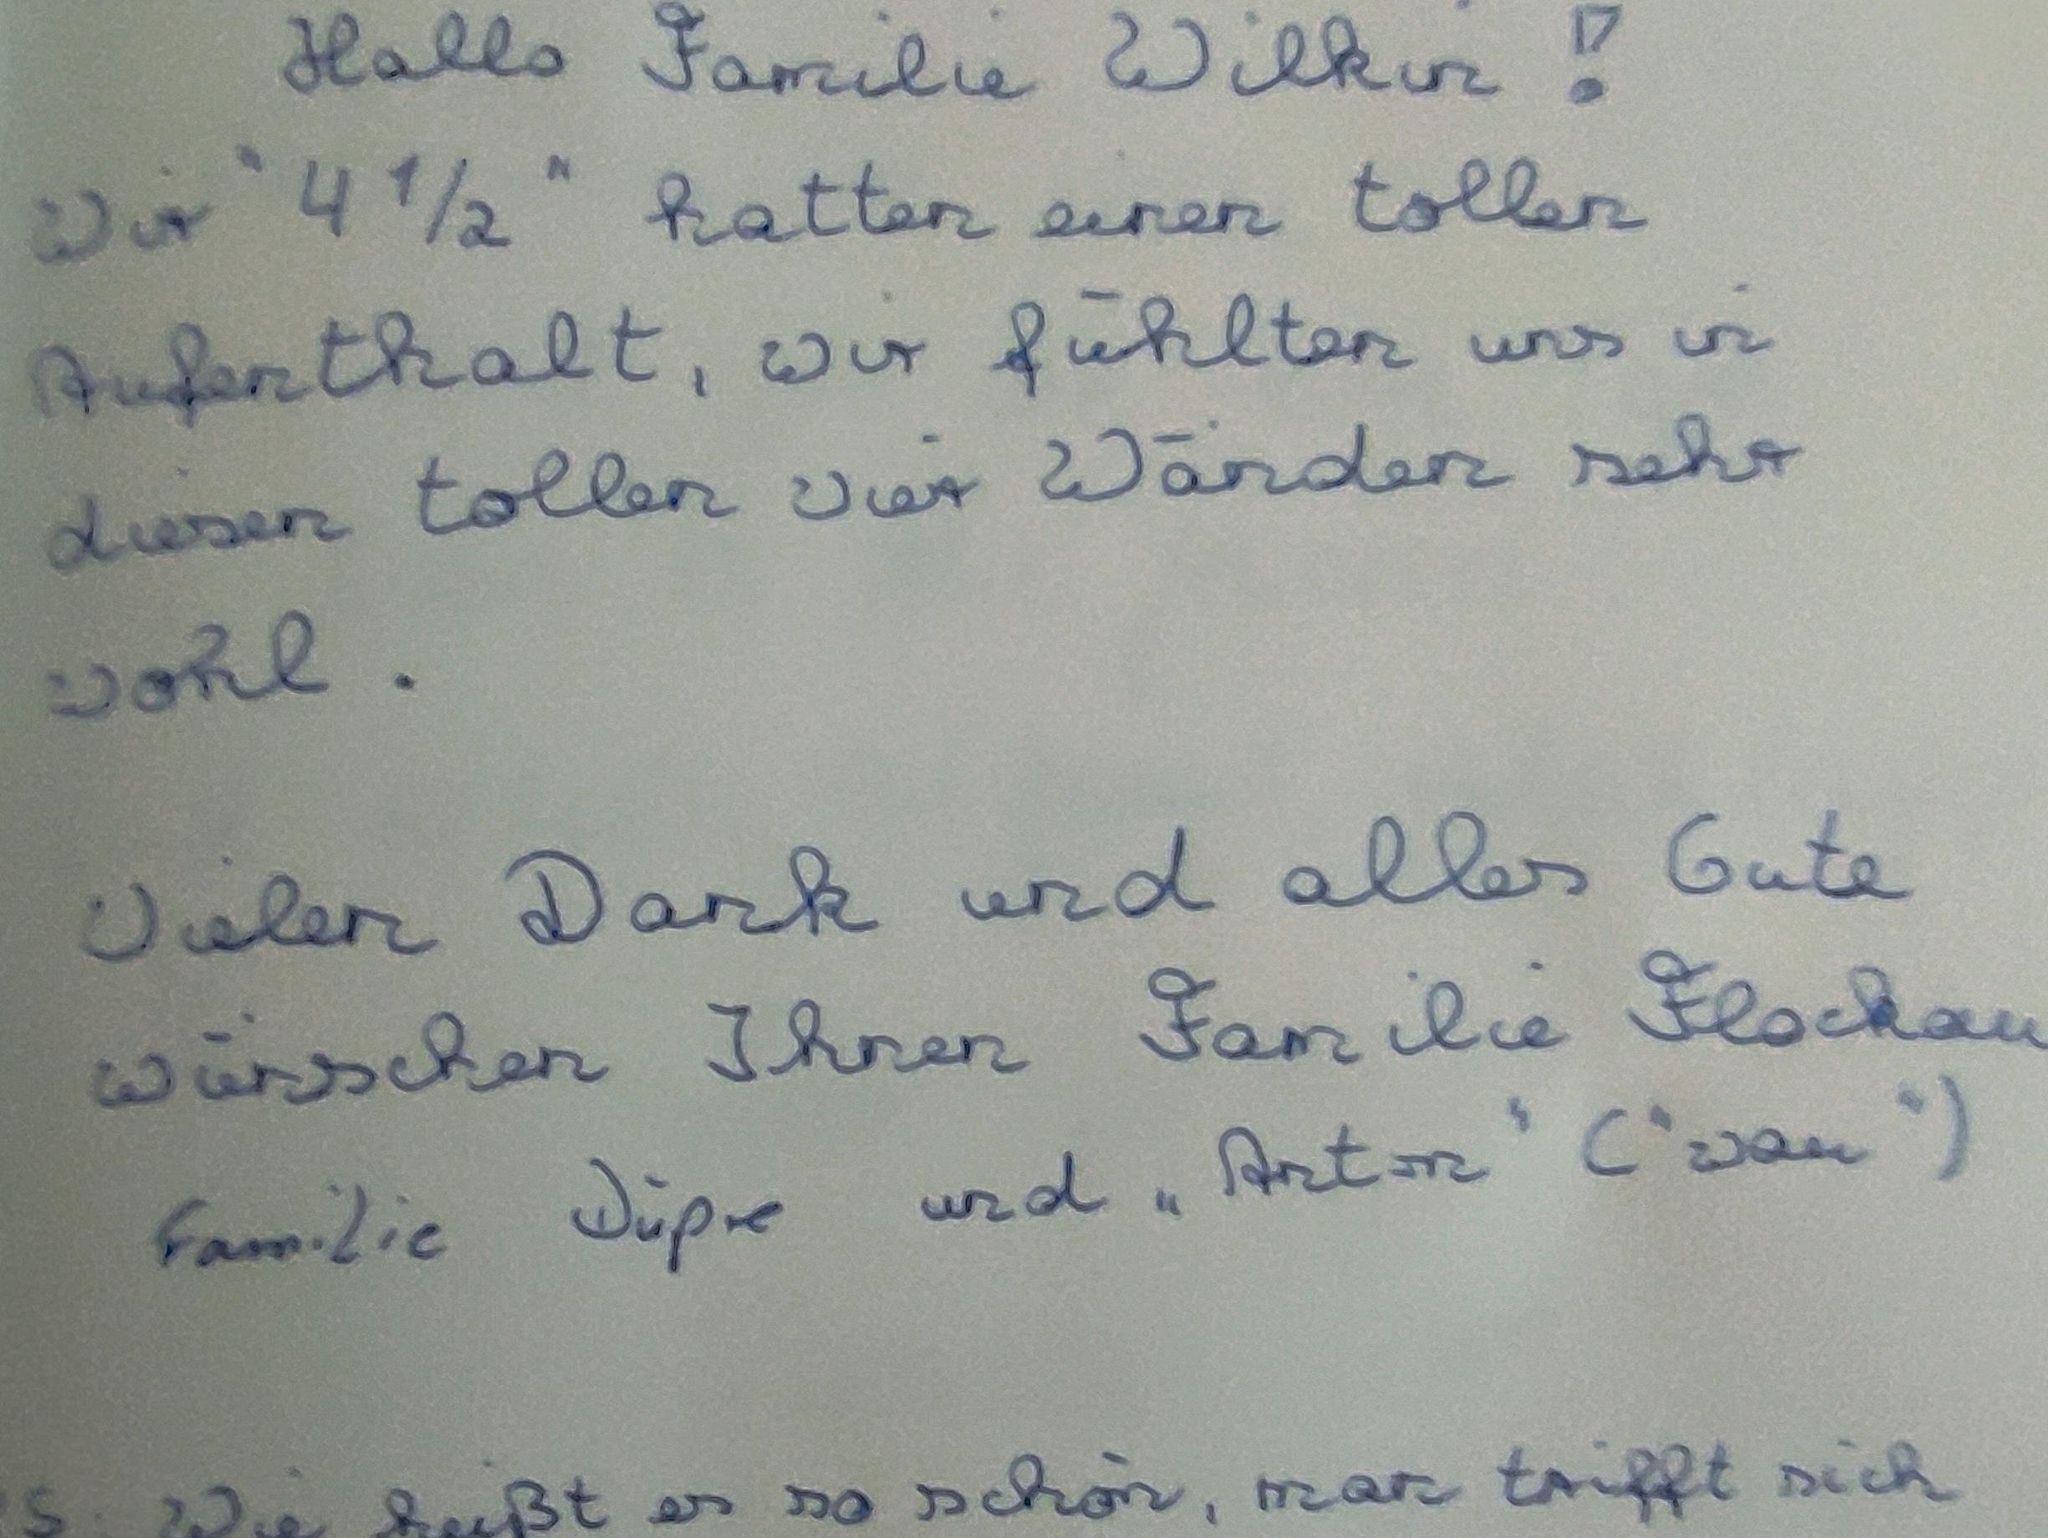 Hallo Familie Wilkin!
Wir "4 1/2" hatten einen tollen
Aufenthalt, wir fühlten uns in
diesen tollen vier Wänden sehr
wohl.
Vielen Dank und alles Gute
wünschen Ihnen Familie Flockau
Familie Düpre und „Anton" ("wau")
S. Wie heißt es so schön, man trifft sich